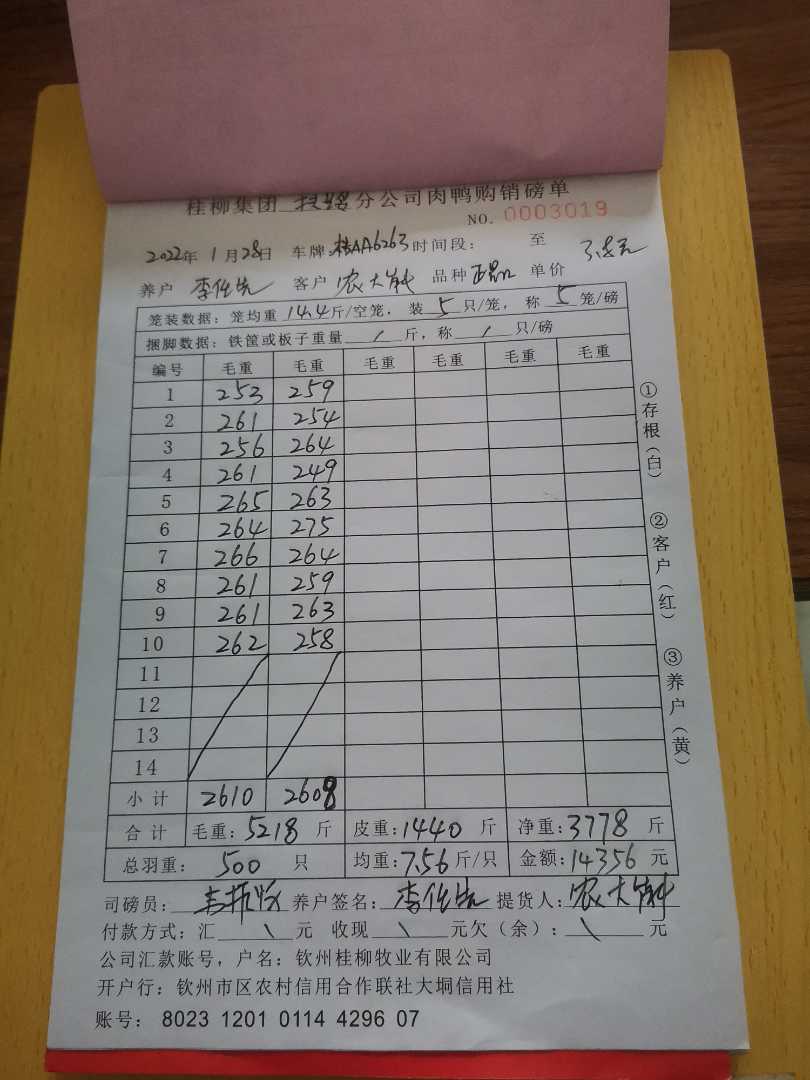 桂柳集团 分公司肉鸭购销磅单
NO. 0003019
2022年 1月 28日 车牌:桂AA6263 时间段: 至
养户 李仕 客户 农大 品种 正品 单价
笼装数据: 笼均重 14.4斤/空笼, 装 5 只/笼, 称 5 笼/磅
捆脚数据: 铁筐或板子重量 / 斤, 称 / 只/磅
编号 毛重 毛重 毛重 毛重 毛重 毛重
1 253 259
2 261 254
3 256 264
4 261 249
5 265 263
6 264 275
7 266 264
8 261 259
9 261 263
10 262 258
11
12
13
14
小计 2610 2608
合计 毛重:5218 斤 皮重:1440 斤 净重:3778 斤
总羽重: 500 只 均重:7.56斤/只 金额:14356 元
司磅员: 养户签名: 李仕 提货人: 农大
付款方式: 汇 \ 元 收现 \ 元欠(余): \ 元
公司汇款账号, 户名: 钦州桂柳牧业有限公司
开户行: 钦州市区农村信用合作联社大垌信用社
账号: 8023 1201 0114 4296 07
①存根(白)
②客户(红)
③养户(黄)